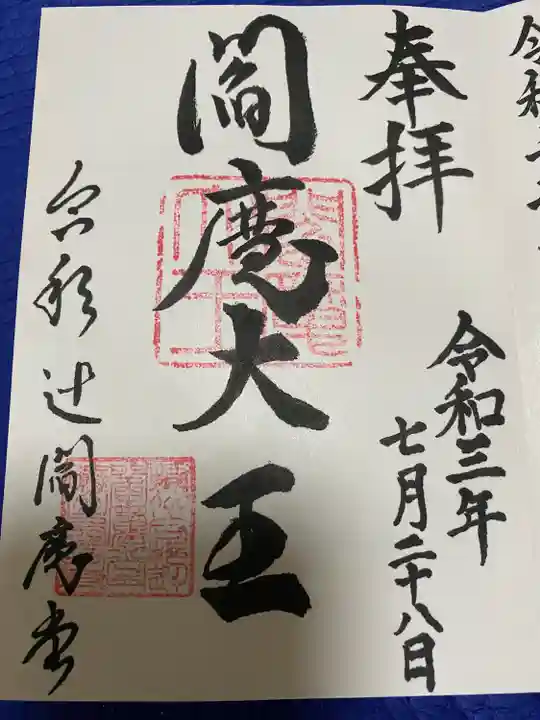 令和
奉拝
令和三年
七月二十八日
閻魔大王
辻閻魔堂